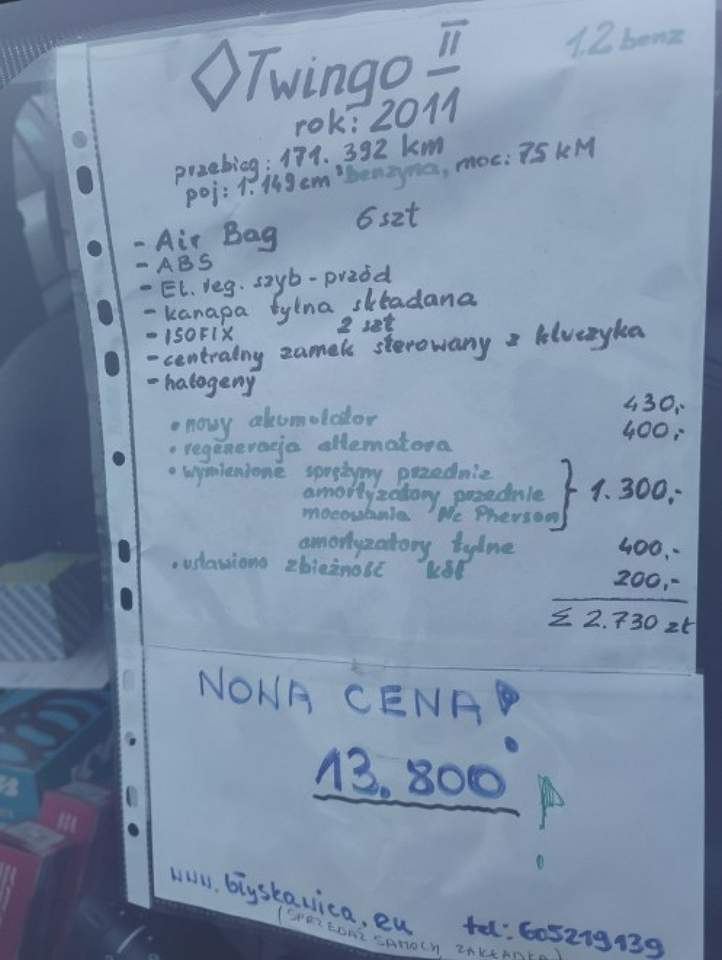 Twingo II
1.2 benz
rok: 2011
przebieg: 171.392 km
poj: 1.149cm³ benzyna, moc: 75 kM
- Air Bag 6 szt
- ABS
- El. reg. szyb - przód
- kanapa tylna składana
- ISOFIX 2 szt
- centralny zamek sterowany z kluczyka
- halogeny
• nowy akumulator 430,-
• regeneracja alternatora 400,-
• wymienione sprężyny przednie
amortyzatory przednie } 1.300,-
mocowania Mc Pherson
amortyzatory tylne 400,-
• ustawiono zbieżność kół 200,-
Σ 2.730 zł
NOWA CENA!
13.800 !
www.błyskawica.eu tel: 605219139
(SPRZEDAŻ SAMOCH, ZAKŁADKA)